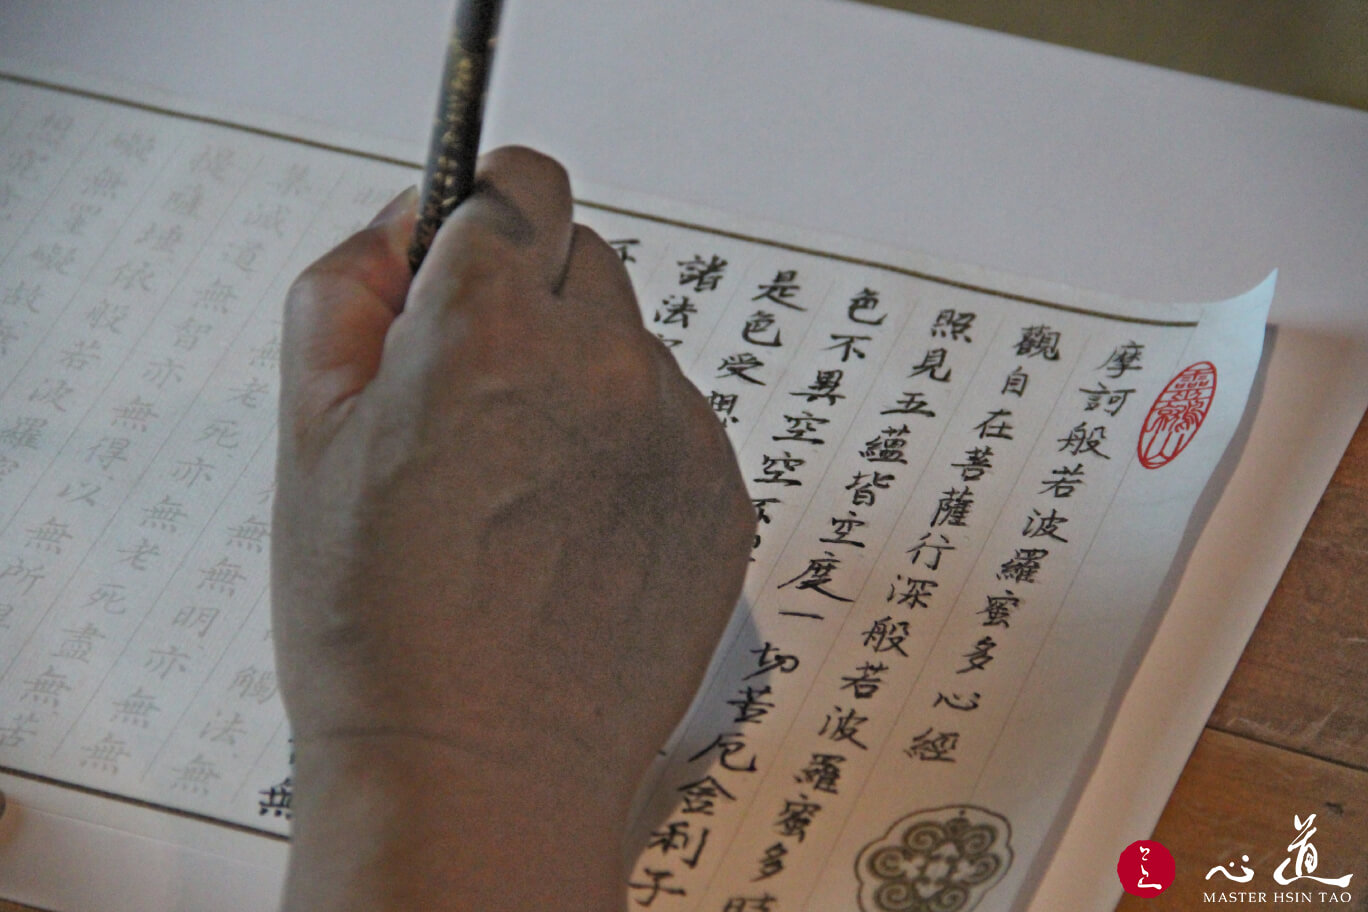 靈鷲山
摩訶般若波羅蜜多心經
觀自在菩薩行深般若波羅蜜多時
照見五蘊皆空度一切苦厄舍利子
色不異空空不異
是色受想
諸法空
不
無
觸法無
無無明亦無無
明
無老死亦無老死盡無苦
集滅道無智亦無得以無所得
提薩埵依般若波羅蜜
礙無罣礙故無
想究竟
心道
MASTER HSIN TAO